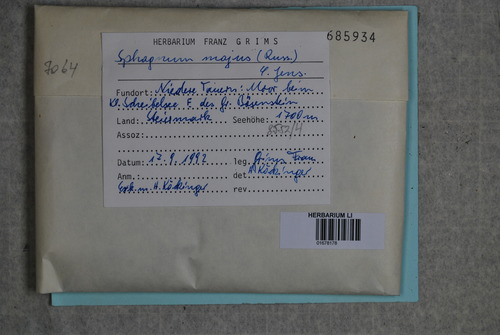 HERBARIUM FRANZ GRIMS
685934
7064
Sphagnum majus (Russ.)
C. Jens.
Fundort: Niedere Tauern: Moor beim
Kl. Scheibelsee E des Gr. Bösenstein
Land: Steiermark Seehöhe: 1700m
Assoz: 8552/4
Datum: 17.9.1992 leg. Grims Franz
Anm. det. H Köckinger
Exk. m. H. Köckinger rev.
HERBARIUM LI
01078179